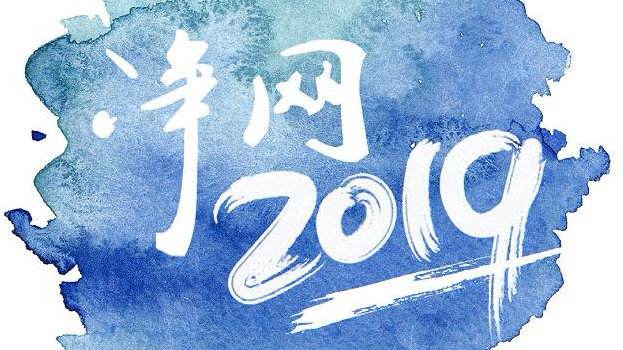 净网
2019